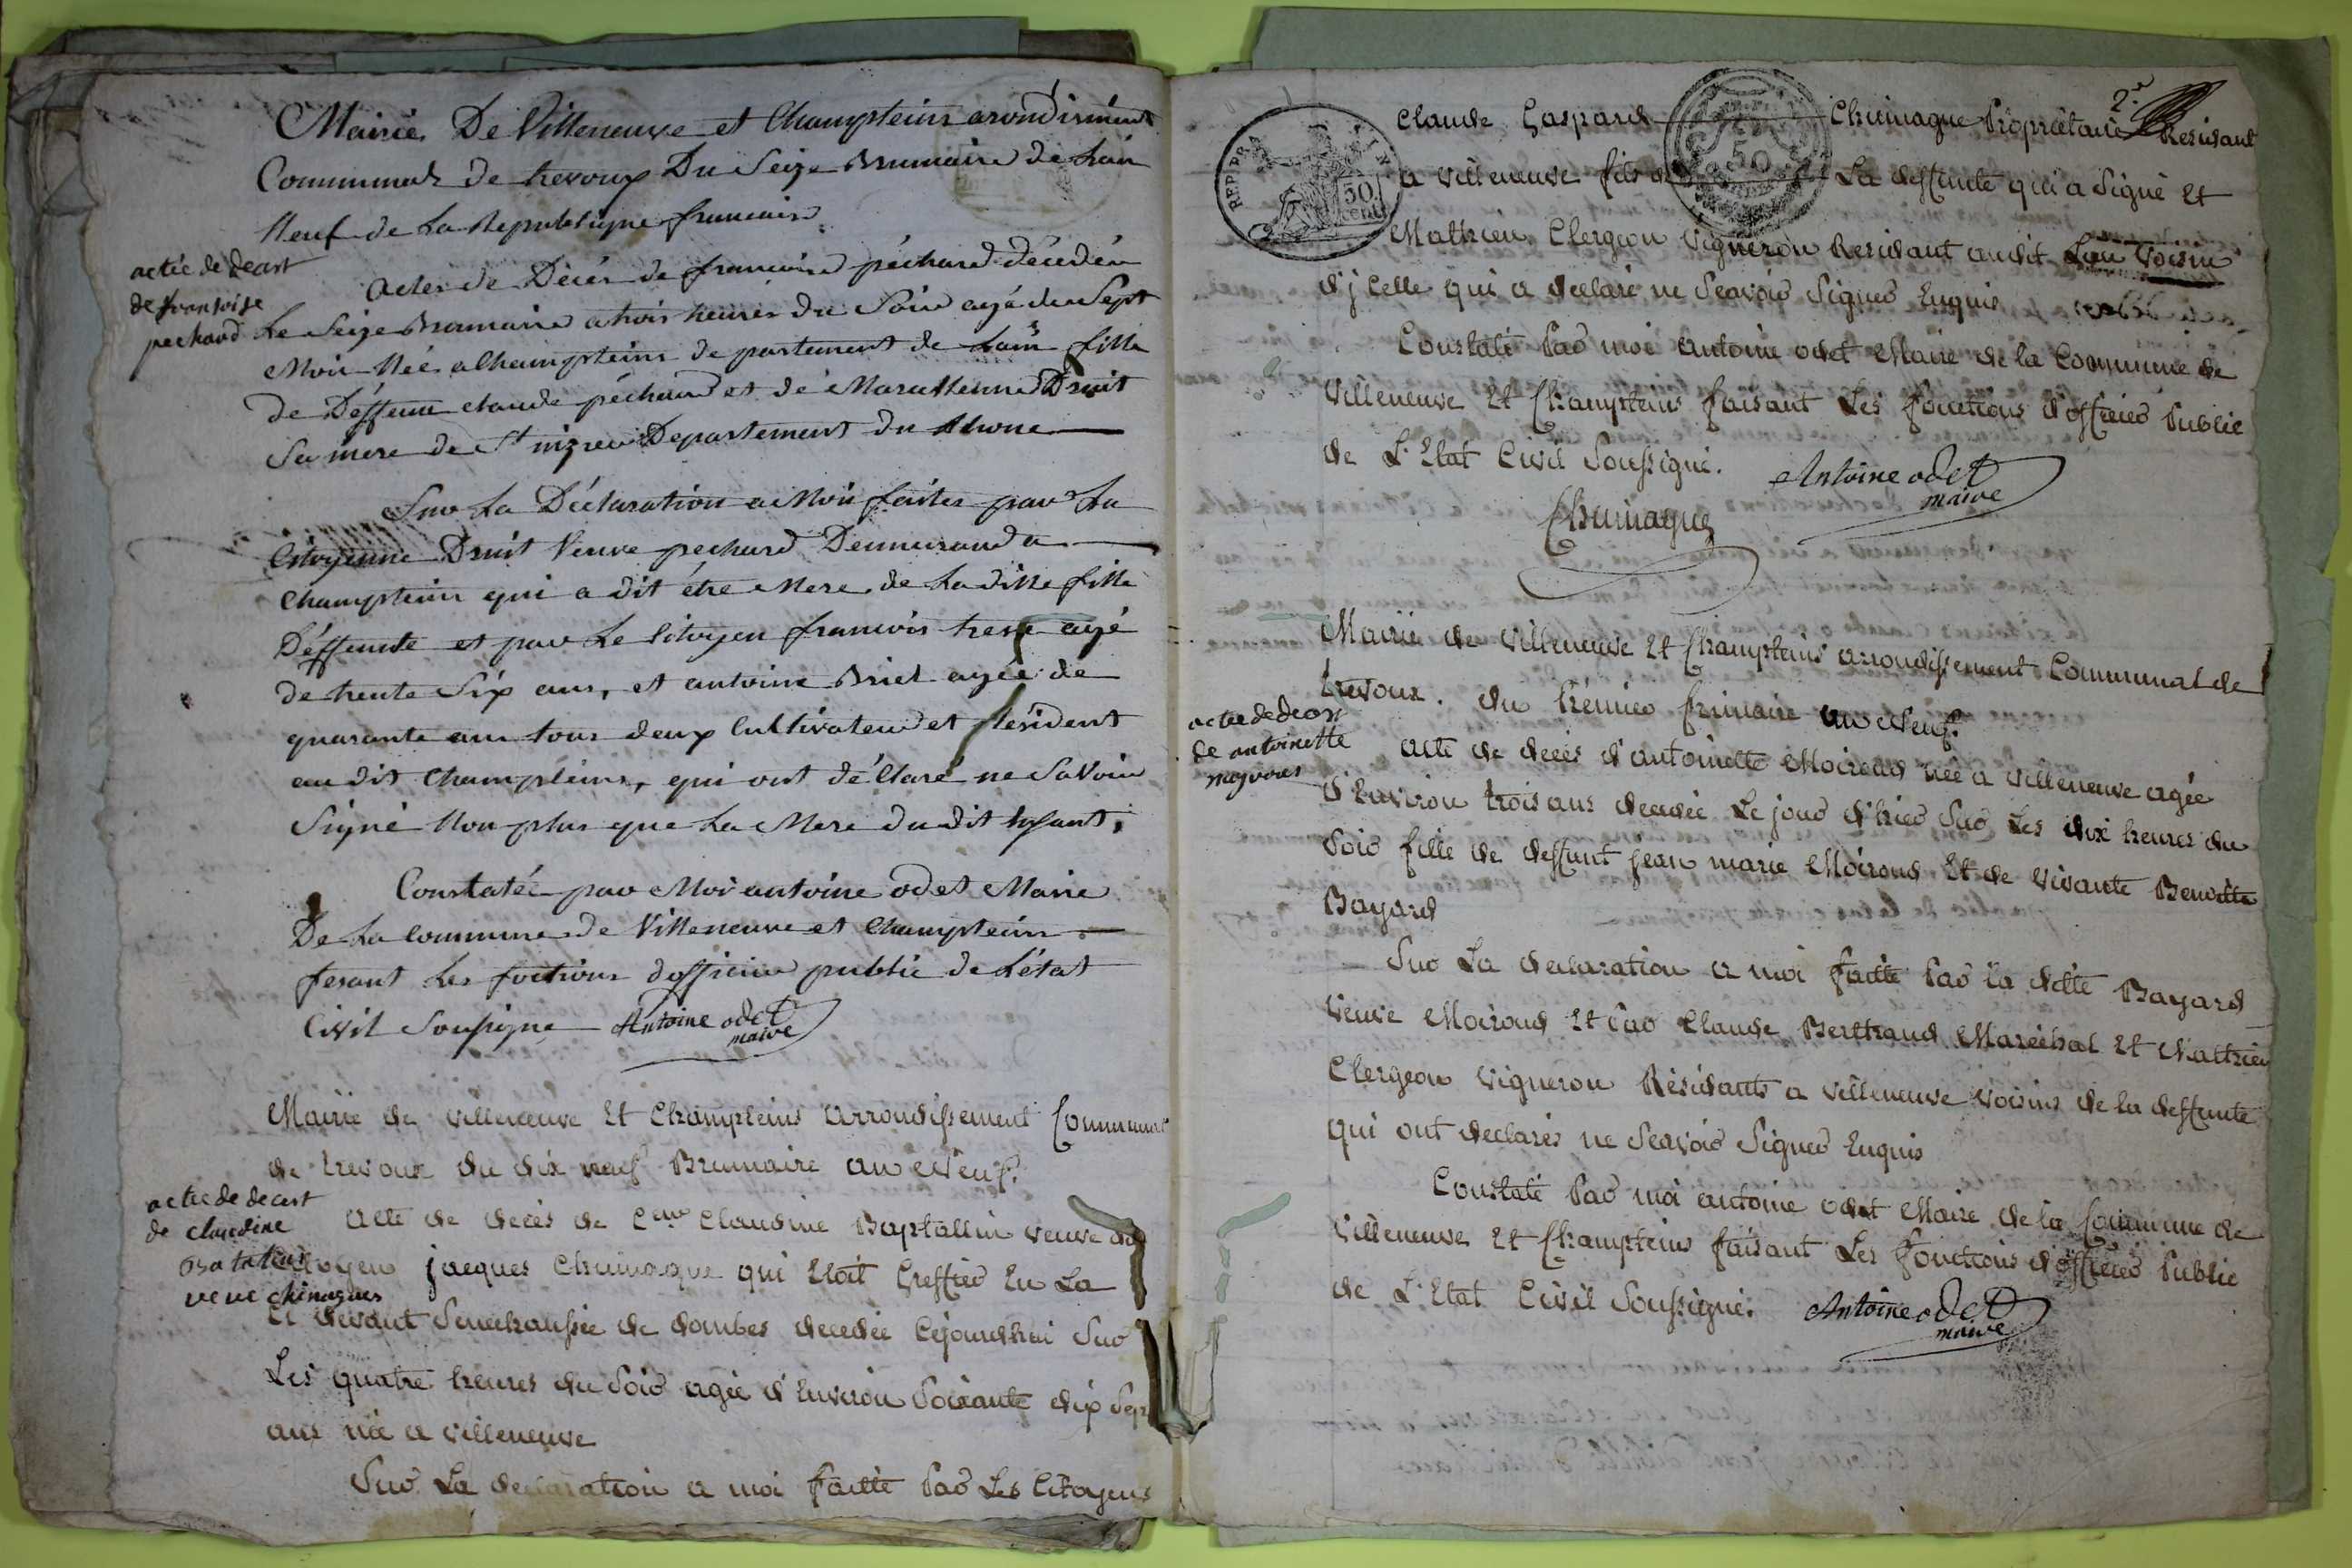 Mairie De Villeneuve et Champteins arondisment
Communal de trevoux Du Seize Brumaire de L'an
Neuf de La Republique francaise
actée de deært
de fransoise
pechard
Actes de Décés de francoise péchard décédée
Le Seize Brumaire a trois heures du Soir agé de Sept
Mois Née a Champteins de partement de Lain fille
de Déffunt claude péchard et dé Druit
Sa mere de St nizier Departement du Rhone
Sur La Déclaration a Moi faites par La
Citoyenne Druit Veuve pechard Demeurand a
Champtein qui a dit étre Mere de La ditte fille
Déffunte et par Le Citoyen francois treve agé
de trente Six ans, et antoine Briel agée de
quarante ans tous deux Cultivateur et Résident
au dit Champteins, qui ont déClaré ne Savoir
Signé Non plus que La Mere du dit Enfant,
Constatée par Moi antoine odet Maire
De La Commune de Villeneuve et Champteins
fesant Les foctions dofficier public de L'état
Civil Sousigne Antoine odet
maire
Mairie de villeneuve Et Champteins arrondissement Communal
de trevoux du dix neuf Brumaire an Neuf.
actée de deært
de claudine
veuve chimagues
acte de decès de Claudine Baptallin veuve du
Citoyen jacques Chumague qui Etoit Greffier En La
Ci devant Senechaussée de dombes decedée Cejourdhui Sur
Les quatre heures du Soir agée d'Environ Soixante dix Sept
ans née a villeneuve
Sur La declaration a moi faitte Par Les Citoyens
2e
Claude Gaspard Chumague Propriétaire Residant
a villeneuve fils de La deffunte qui a Signé Et
Mathieu Clergeon vigneron Residant audit Lieu Voisin
d'jCelle qui a declaré ne Seavoir Signer Enquis
Constaté Par moi antoine odet Maire de la Commune de
villeneuve Et Champteins faisant Les fonctions d'officier Public
de L'Etat Civil Soussigné.
Antoine odet
maire
Chumague
REP FRA
50
cent
50
Mairie de villeneuve Et Champteins arrondissement Communal de
trevoux. du Frimaire an Neuf.
actée de deær
de antoinette
acte de decès d'antoinette Moiroud née a villeneuve agée
d'Environ trois ans decedée Le jour d'hier Sur Les dix heures du
Soir fille de deffunt jean marie Moiroud Et de vivante Benoitte
Bayard
Sur La declaration a moi faitte Par la ditte Bayard
veuve Moiroud Et Par Claude Berthaud Maréchal Et Mathieu
Clergeon vigneron Résidants a villeneuve voisins de la deffunte
qui ont declarés ne Seavoir Signer Enquis
Constaté Par moi antoine odet Maire de la Commune de
villeneuve Et Champteins faisant Les fonctions d'officier Public
de L'Etat Civil Soussigné.
Antoine odet
maire